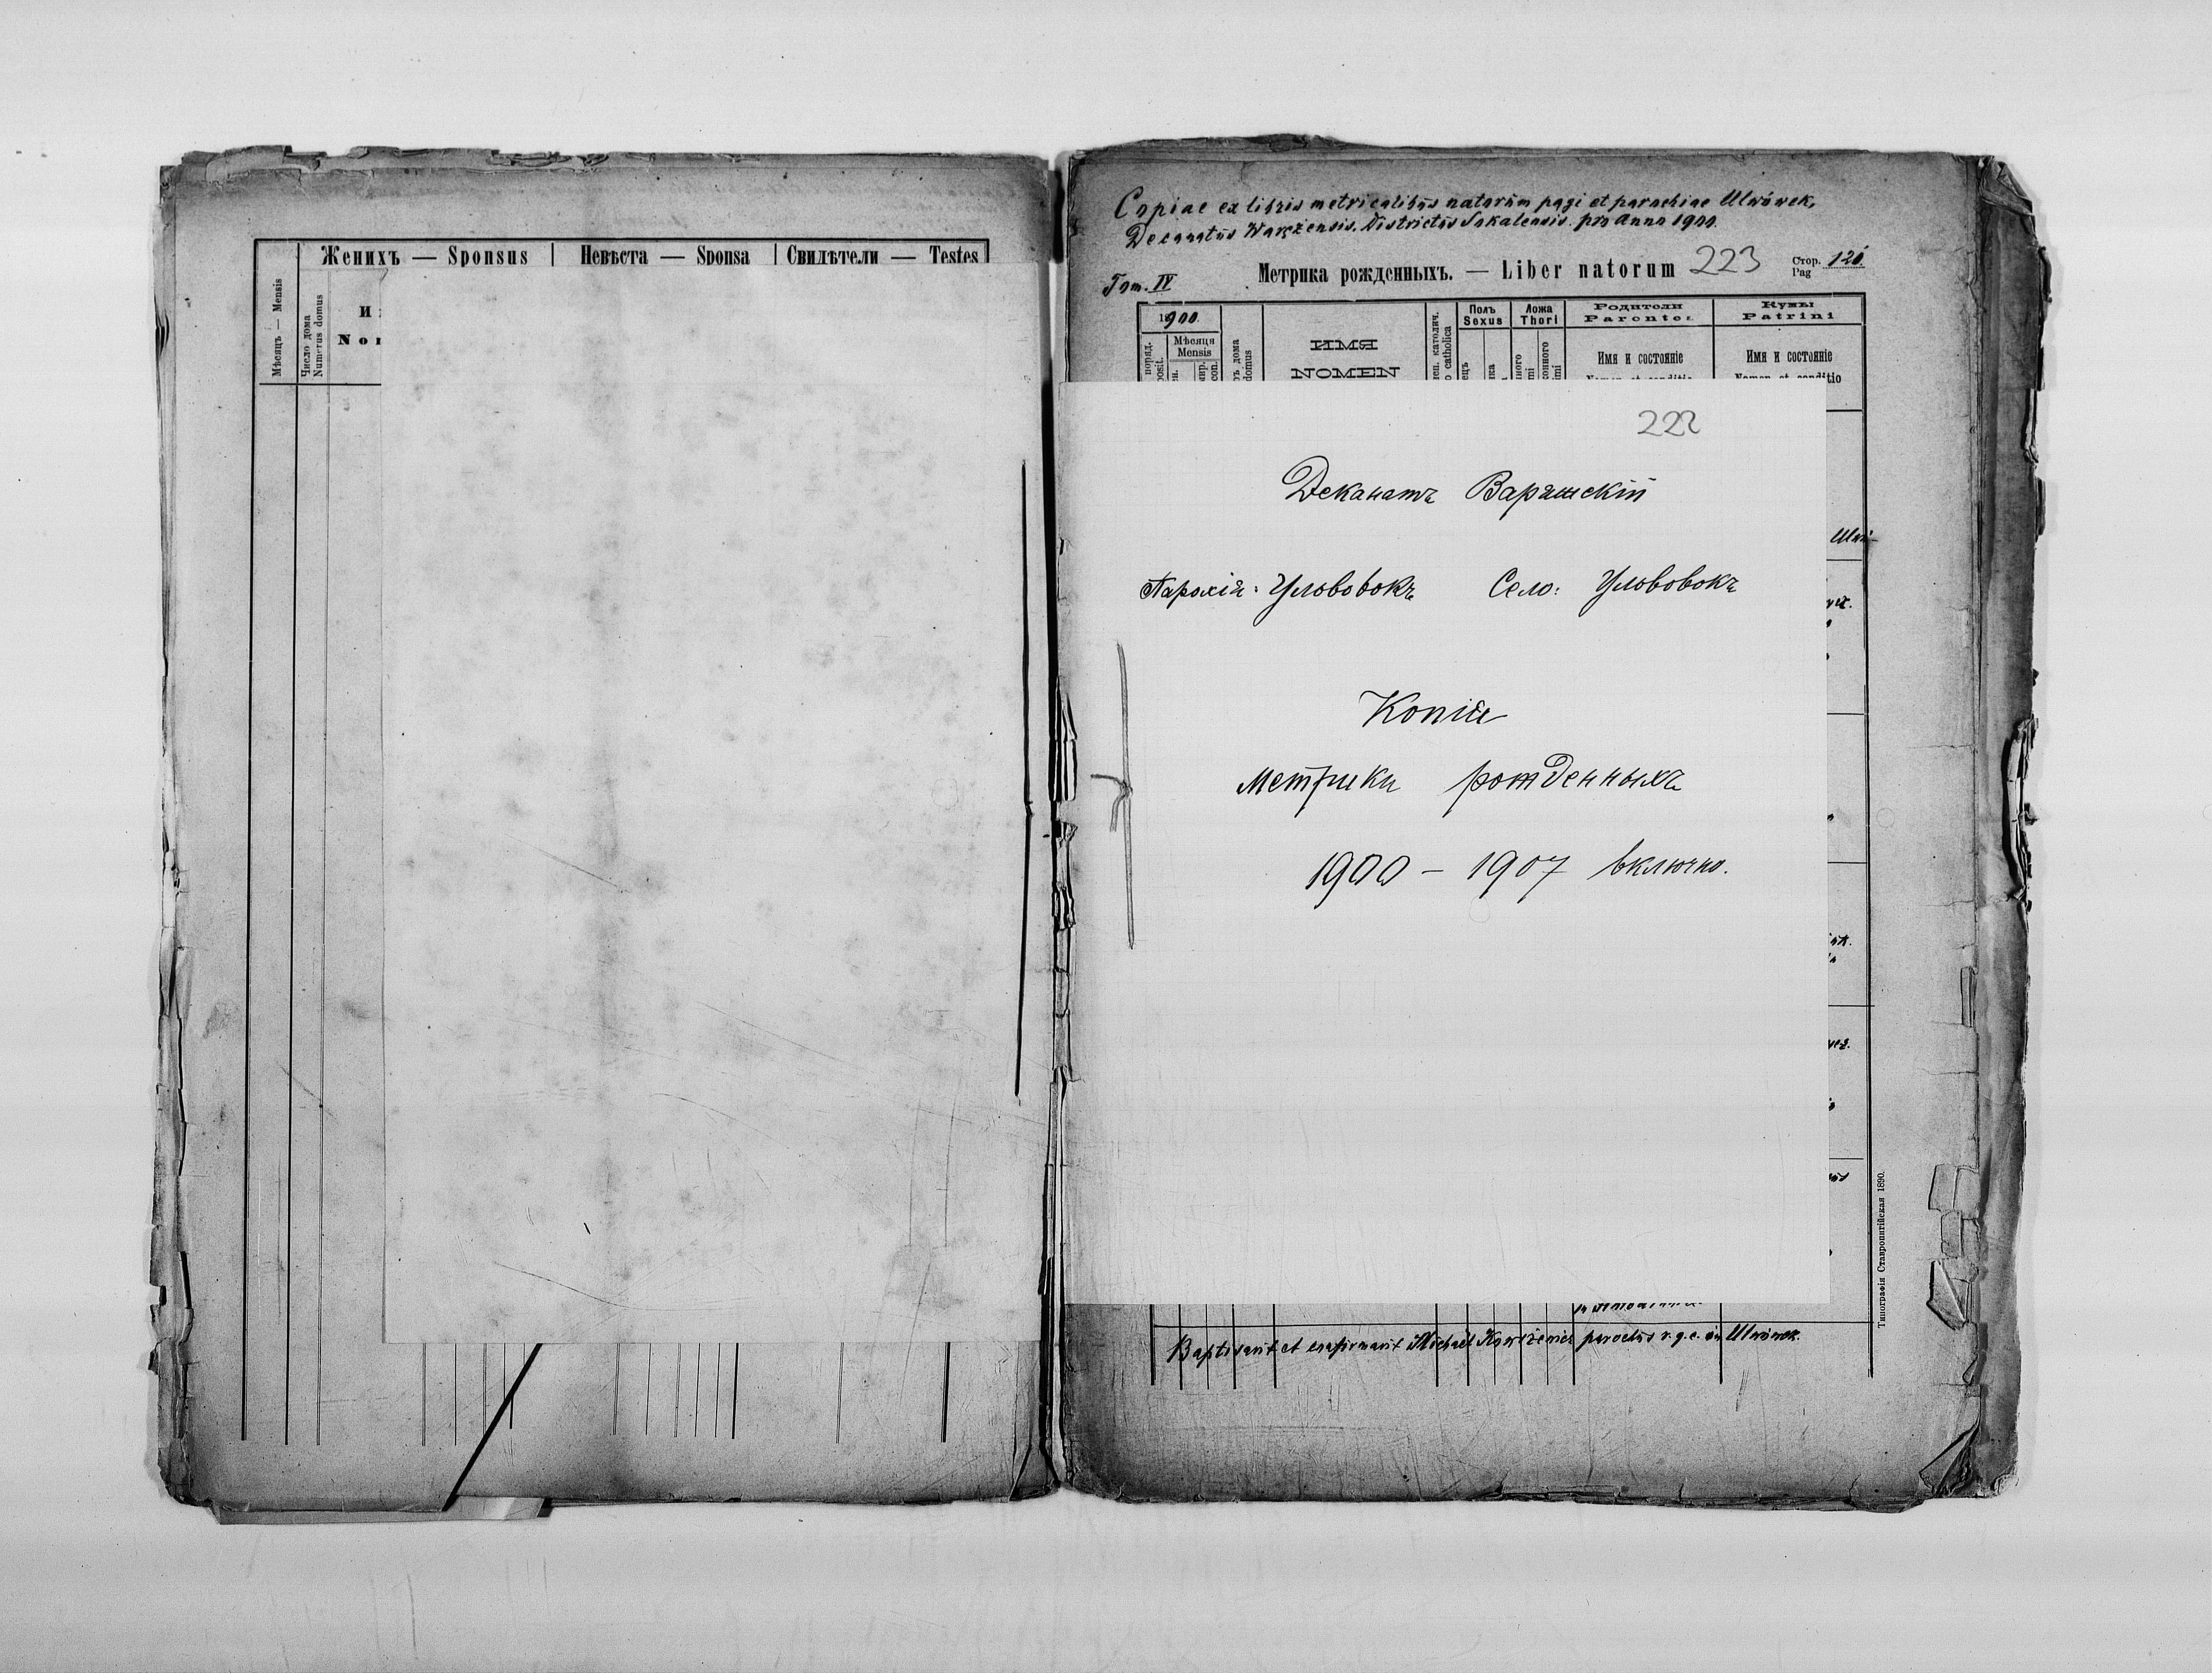 Женихъ — Sponsus
Невѣста — Sponsa
Свидѣтели — Testes
Мѣсяцъ — Mensis
Число дома
Numerus domus
Copiae ex libris metricalibus natorum pagi et parochiae Ulwówek,
Decanatus Waręzensis, Districtus Sokalensis. pro Anno 1900.
Tom. IV
Метрика рожденныхъ. — Liber natorum 223
Стор. 121
Pag
1900.
Мѣсяця
Mensis
ИМЯ
NOMEN
Полъ
Sexus
Ложа
Thori
Родители
Parentes
Имя и состояніе
Кумы
Patrini
Имя и состояніе
222
Деканатъ Варяжскій
Парохія: Угловокъ Село: Угловокъ
Копія
Метрики рожденныхъ
1900 – 1907 включно.
Baptisavit et confirmavit Michael parochus r. g. c. in Ulwówek.
Типографія Ставропигійская 1890.